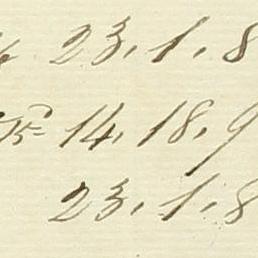 23. 1. 8
14. 18. 9
23. 1. 8